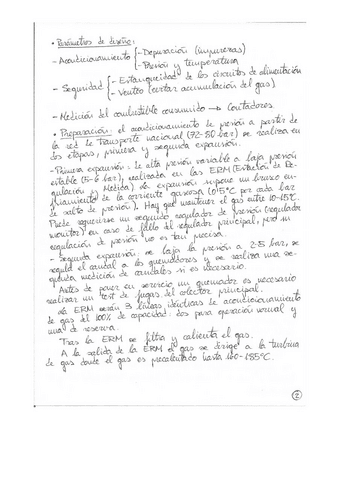 • Parámetros de diseño:
- Acondicionamiento { - Depuración (impurezas)
- Presión y temperatura
- Seguridad { - Estanqueidad de los circuitos de alimentación
- Venteo (evitar acumulación del gas)
- Medición del combustible consumido → Contadores.
• Preparación: el acondicionamiento de presión a partir de
la red de transporte nacional (72-80 bar) se realiza en
dos etapas, primera y segunda expansión.
- Primera expansión: de alta presión variable a baja presión
estable (5-6 bar), realizada en las ERM (Estación de Re-
gulación y Medida). La expansión supone un brusco en-
friamiento de la corriente gaseosa (0'5°C por cada bar
de salto de presión). Hay que mantener el gas entre 10-15°C.
Puede requerirse un segundo regulador de presión (regulador
monitor) en caso de fallo del regulador principal, pero su
regulación de presión no es tan precisa.
- Segunda expansión: se baja la presión a 2-5 bar, se
regula el caudal a los quemadores y se realiza una se-
gunda medición de caudales si es necesario.
Antes de poner en servicio un quemador es necesario
realizar un test de fugas del colector principal.
La ERM serán 3 líneas idénticas de acondicionamiento
de gas del 100% de capacidad: dos para operación normal y
una de reserva.
Tras la ERM se filtra y calienta el gas.
A la salida de la ERM el gas se dirige a la turbina
de gas donde el gas es precalentado hasta 160-185°C.
2